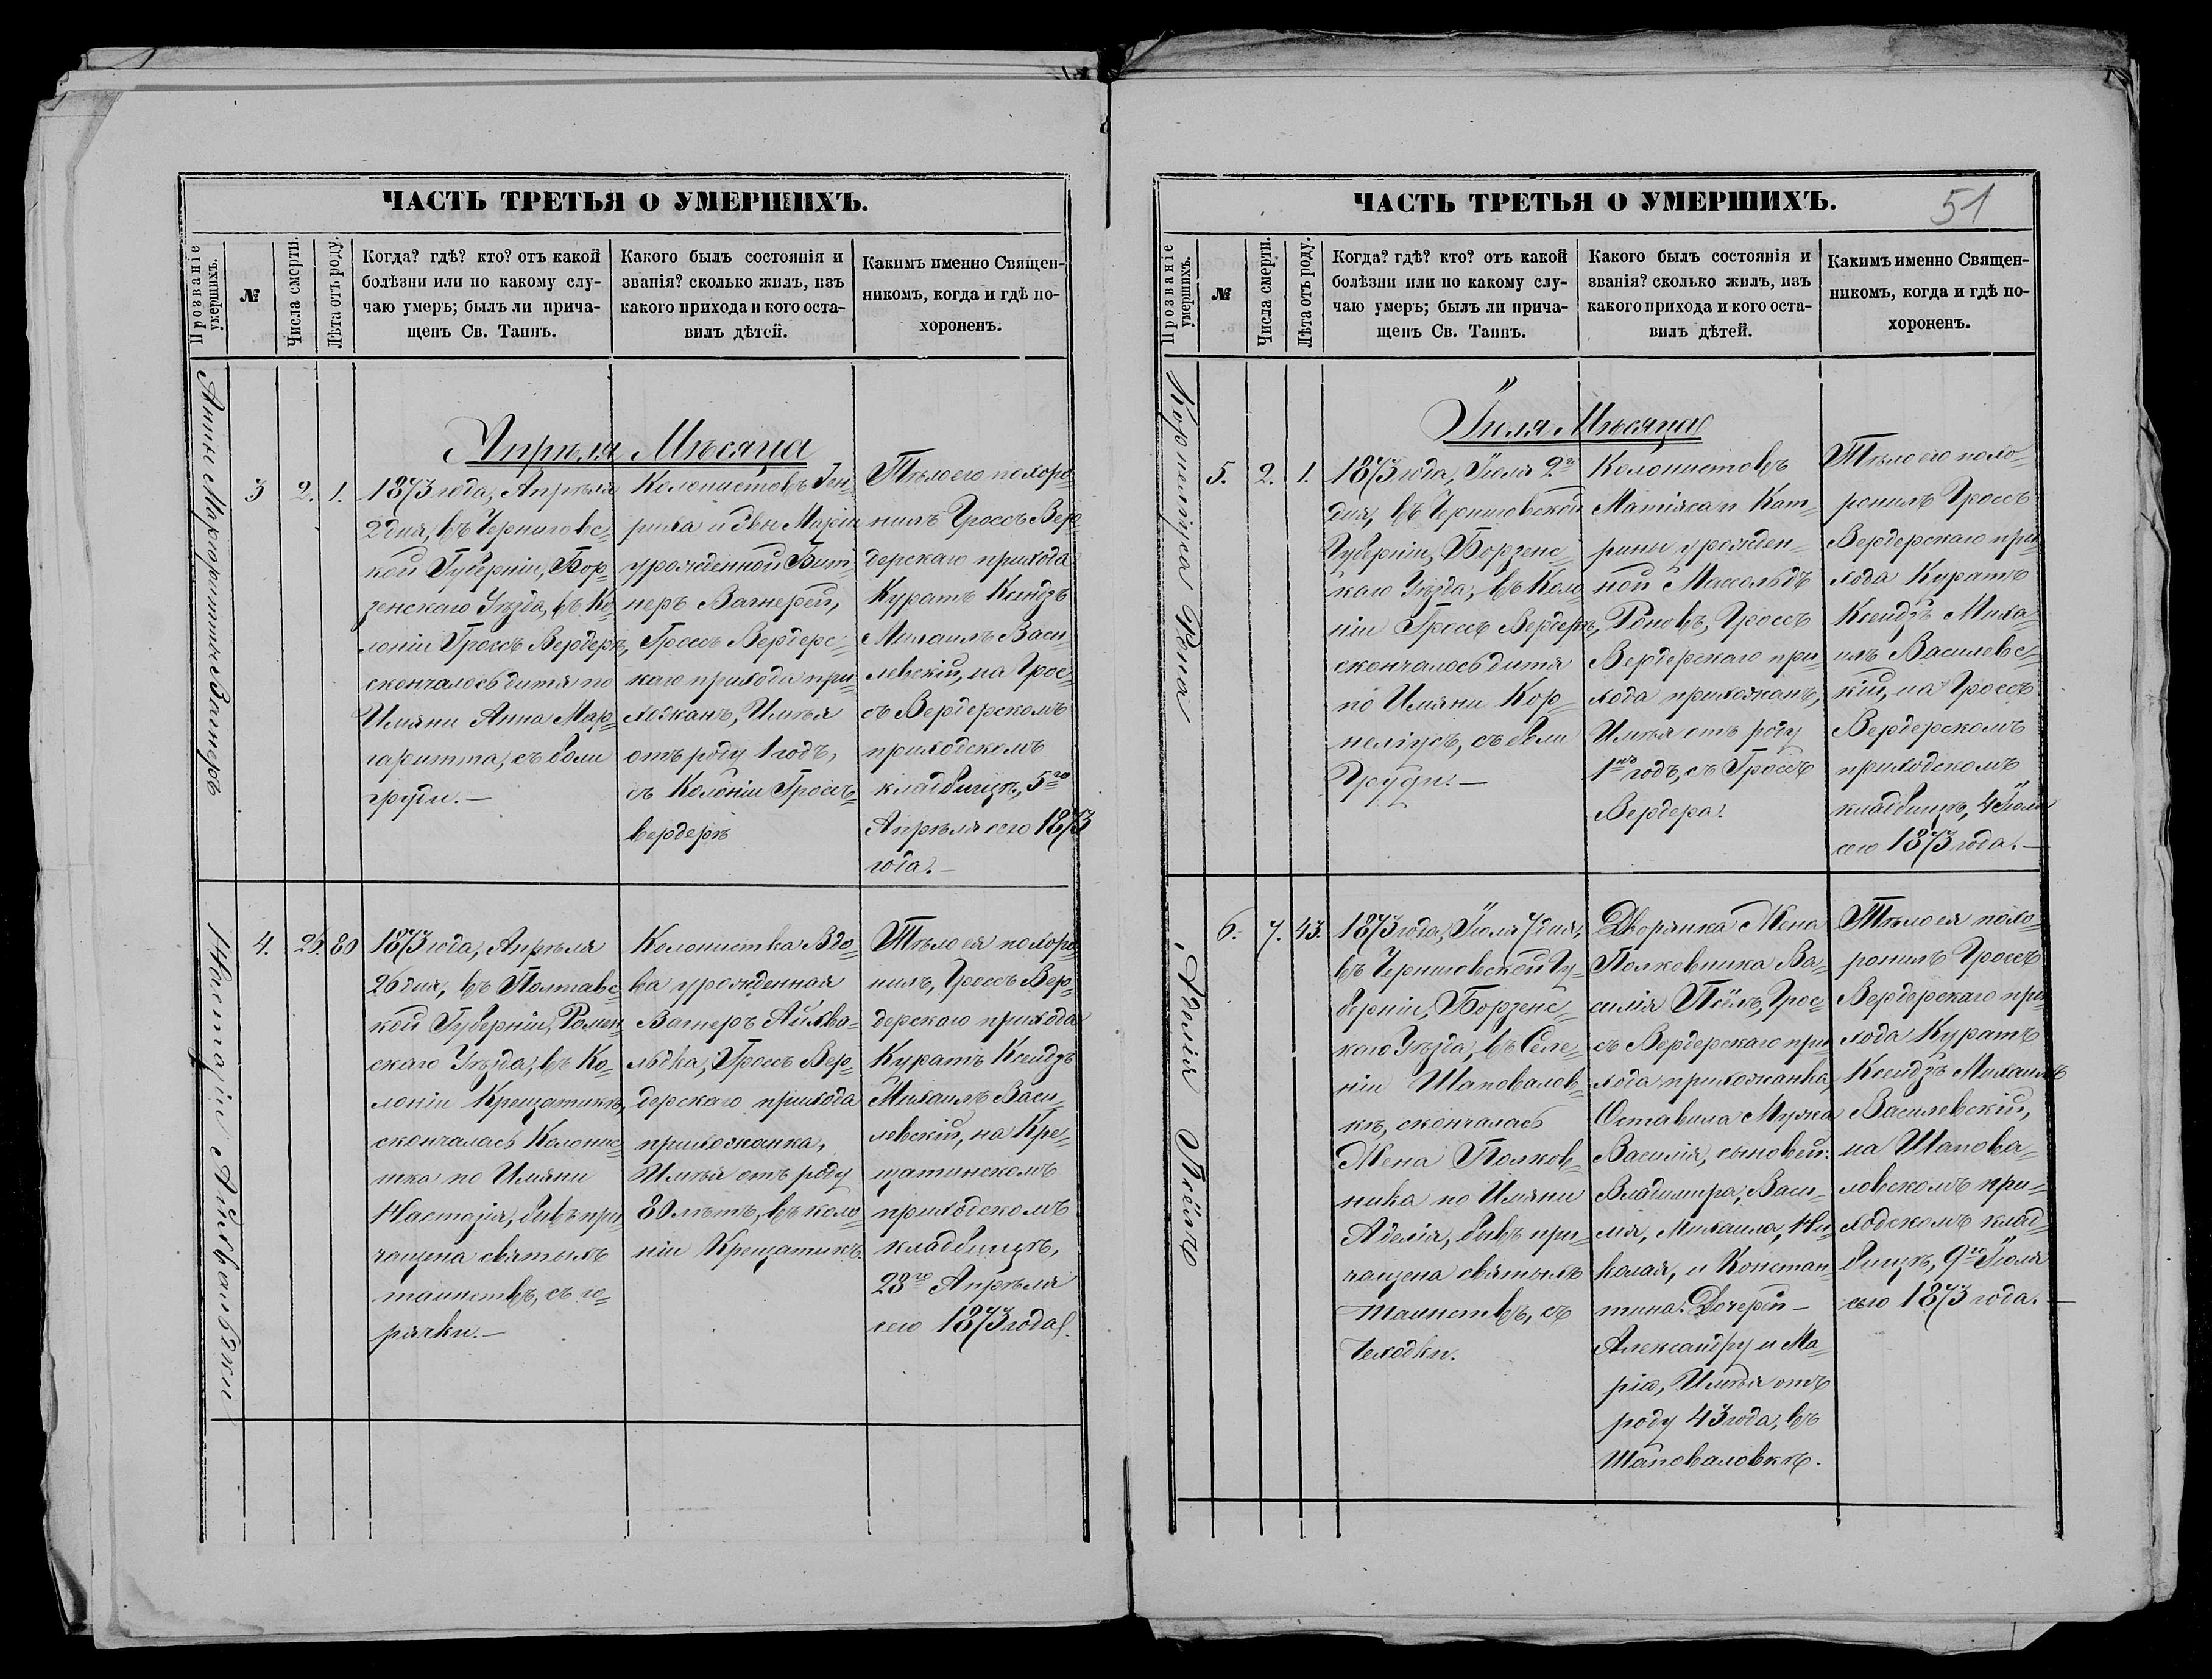 ЧАСТЬ ТРЕТЬЯ О УМЕРШИХЪ.
Прозваніе умершихъ.
№
Числа смерти.
Лѣта отъ роду.
Когда? гдѣ? кто? отъ какой
болѣзни или по какому слу-
чаю умеръ; былъ ли прича-
щенъ Св. Таинъ.
Какого былъ состоянія и
званія? сколько жилъ, изъ
какого прихода и кого оста-
вилъ дѣтей.
Какимъ именно Священ-
никомъ, когда и гдѣ по-
хороненъ.
Апрѣля Мѣсяца
Анны Маргаритты Вагнеръ
3
2.
1.
1873 года, Апрѣля
2 дня, въ Черниговс=
кой Губерніи, Бор=
зенскаго Уѣзда, въ Ко=
лоніи Гроссъ Вердерѣ,
скончалось дитя по
Имяни Анна Мар=
гаритта, съ боли
груди.—
Колонистовъ Ген=
риха и Эвы Маріи
урожденной Бит=
неръ Вагнерей,
Гроссъ Вердерс=
каго прихода при=
хожанъ, Имѣя
отъ роду 1 годъ,
съ Колоніи Гроссъ=
вердерѣ
Тѣло его похоро=
нилъ Гроссъ Вер=
дерскаго прихода
Куратъ Ксендзъ
Михаилъ Васи=
левскій, на Грос=
съ Вердерскомъ
приходскомъ
кладбищѣ, 5го
Апрѣля сего 1873
года.—
Настазіи Айхвальдки
4.
26.
80
1873 года, Апрѣля
26 дня, въ Полтавс=
кой Губерніи, Ромен=
скаго Уѣзда, въ Ко=
лоніи Крещатикѣ,
скончалась Колонис=
тка по Имяни
Настазія, бывъ при=
чащена святымъ
таинствъ, съ го=
рячки.—
Колонистка Вдо=
ва урожденная
Вагнеръ Айхва=
льдка, Гроссъ Вер=
дерскаго прихода
прихожанка,
Имѣя отъ роду
80 лѣтъ, въ коло=
ніи Крещатикѣ.
Тѣло ея похоро=
нилъ, Гроссъ Вер=
дерскаго прихода
Куратъ Ксендзъ
Михаилъ Васи=
левскій, на Кре=
щатинскомъ
приходскомъ
кладбищѣ,
28го Апрѣля
сего 1873 года.
ЧАСТЬ ТРЕТЬЯ О УМЕРШИХЪ.
51
Прозваніе умершихъ.
№
Числа смерти.
Лѣта отъ роду.
Когда? гдѣ? кто? отъ какой
болѣзни или по какому слу-
чаю умеръ; былъ ли прича-
щенъ Св. Таинъ.
Какого былъ состоянія и
званія? сколько жилъ, изъ
какого прихода и кого оста-
вилъ дѣтей.
Какимъ именно Священ-
никомъ, когда и гдѣ по-
хороненъ.
Іюля Мѣсяца
Корнеліуса
5.
2.
1.
1873 года, Іюля 2го
дня, въ Черниговской
Губерніи, Борзенс=
каго Уѣзда, въ Коло=
ніи Гроссъ Вердерѣ,
скончалось дитя
по Имяни Кор=
неліусъ, съ боли
Груди.—
Колонистовъ
Матіяса и Кат=
рины урожден=
ной Массольдъ
Роновъ, Гроссъ
Вердерскаго при=
хода прихожанъ,
Имѣя отъ роду
1нъ годъ, съ Гроссъ
Вердера.
Тѣло его похо=
ронилъ Гроссъ
Вердерскаго при=
хода Куратъ
Ксендзъ Миха=
илъ Василевс=
кій, на Гроссъ
Вердерскомъ
приходскомъ
кладбищѣ, 4 Іюля
сего 1873 года.—
Аделія
6.
7.
43.
1873 года, Іюля 7 дня,
въ Черниговской Гу=
берніи, Борзенс=
каго Уѣзда, въ Селе=
ніи Шаповалов=
кѣ, скончалась
Жена Полков=
ника по Имяни
Аделія, бывъ при=
чащена святымъ
Таинствъ, съ
Чеходки.
Дворянка Жена
Полковника Ва=
силія Грос=
съ Вердерскаго при=
хода прихожанка,
Оставила Мужа
Василія, сыновей:
Владимира, Васи=
лія, Михаила, Ни=
колая, и Констан=
тина. Дочерей—
Александру и Ма=
рію, Имѣя отъ
роду 43 года, въ
Шаповаловкѣ.
Тѣло ея похо=
ронилъ Гроссъ
Вердерскаго при=
хода Куратъ
Ксендзъ Михаилъ
Василевскій,
на Шапова=
ловскомъ при=
ходскомъ клад=
бищѣ, 9го Іюля
сего 1873 года.—